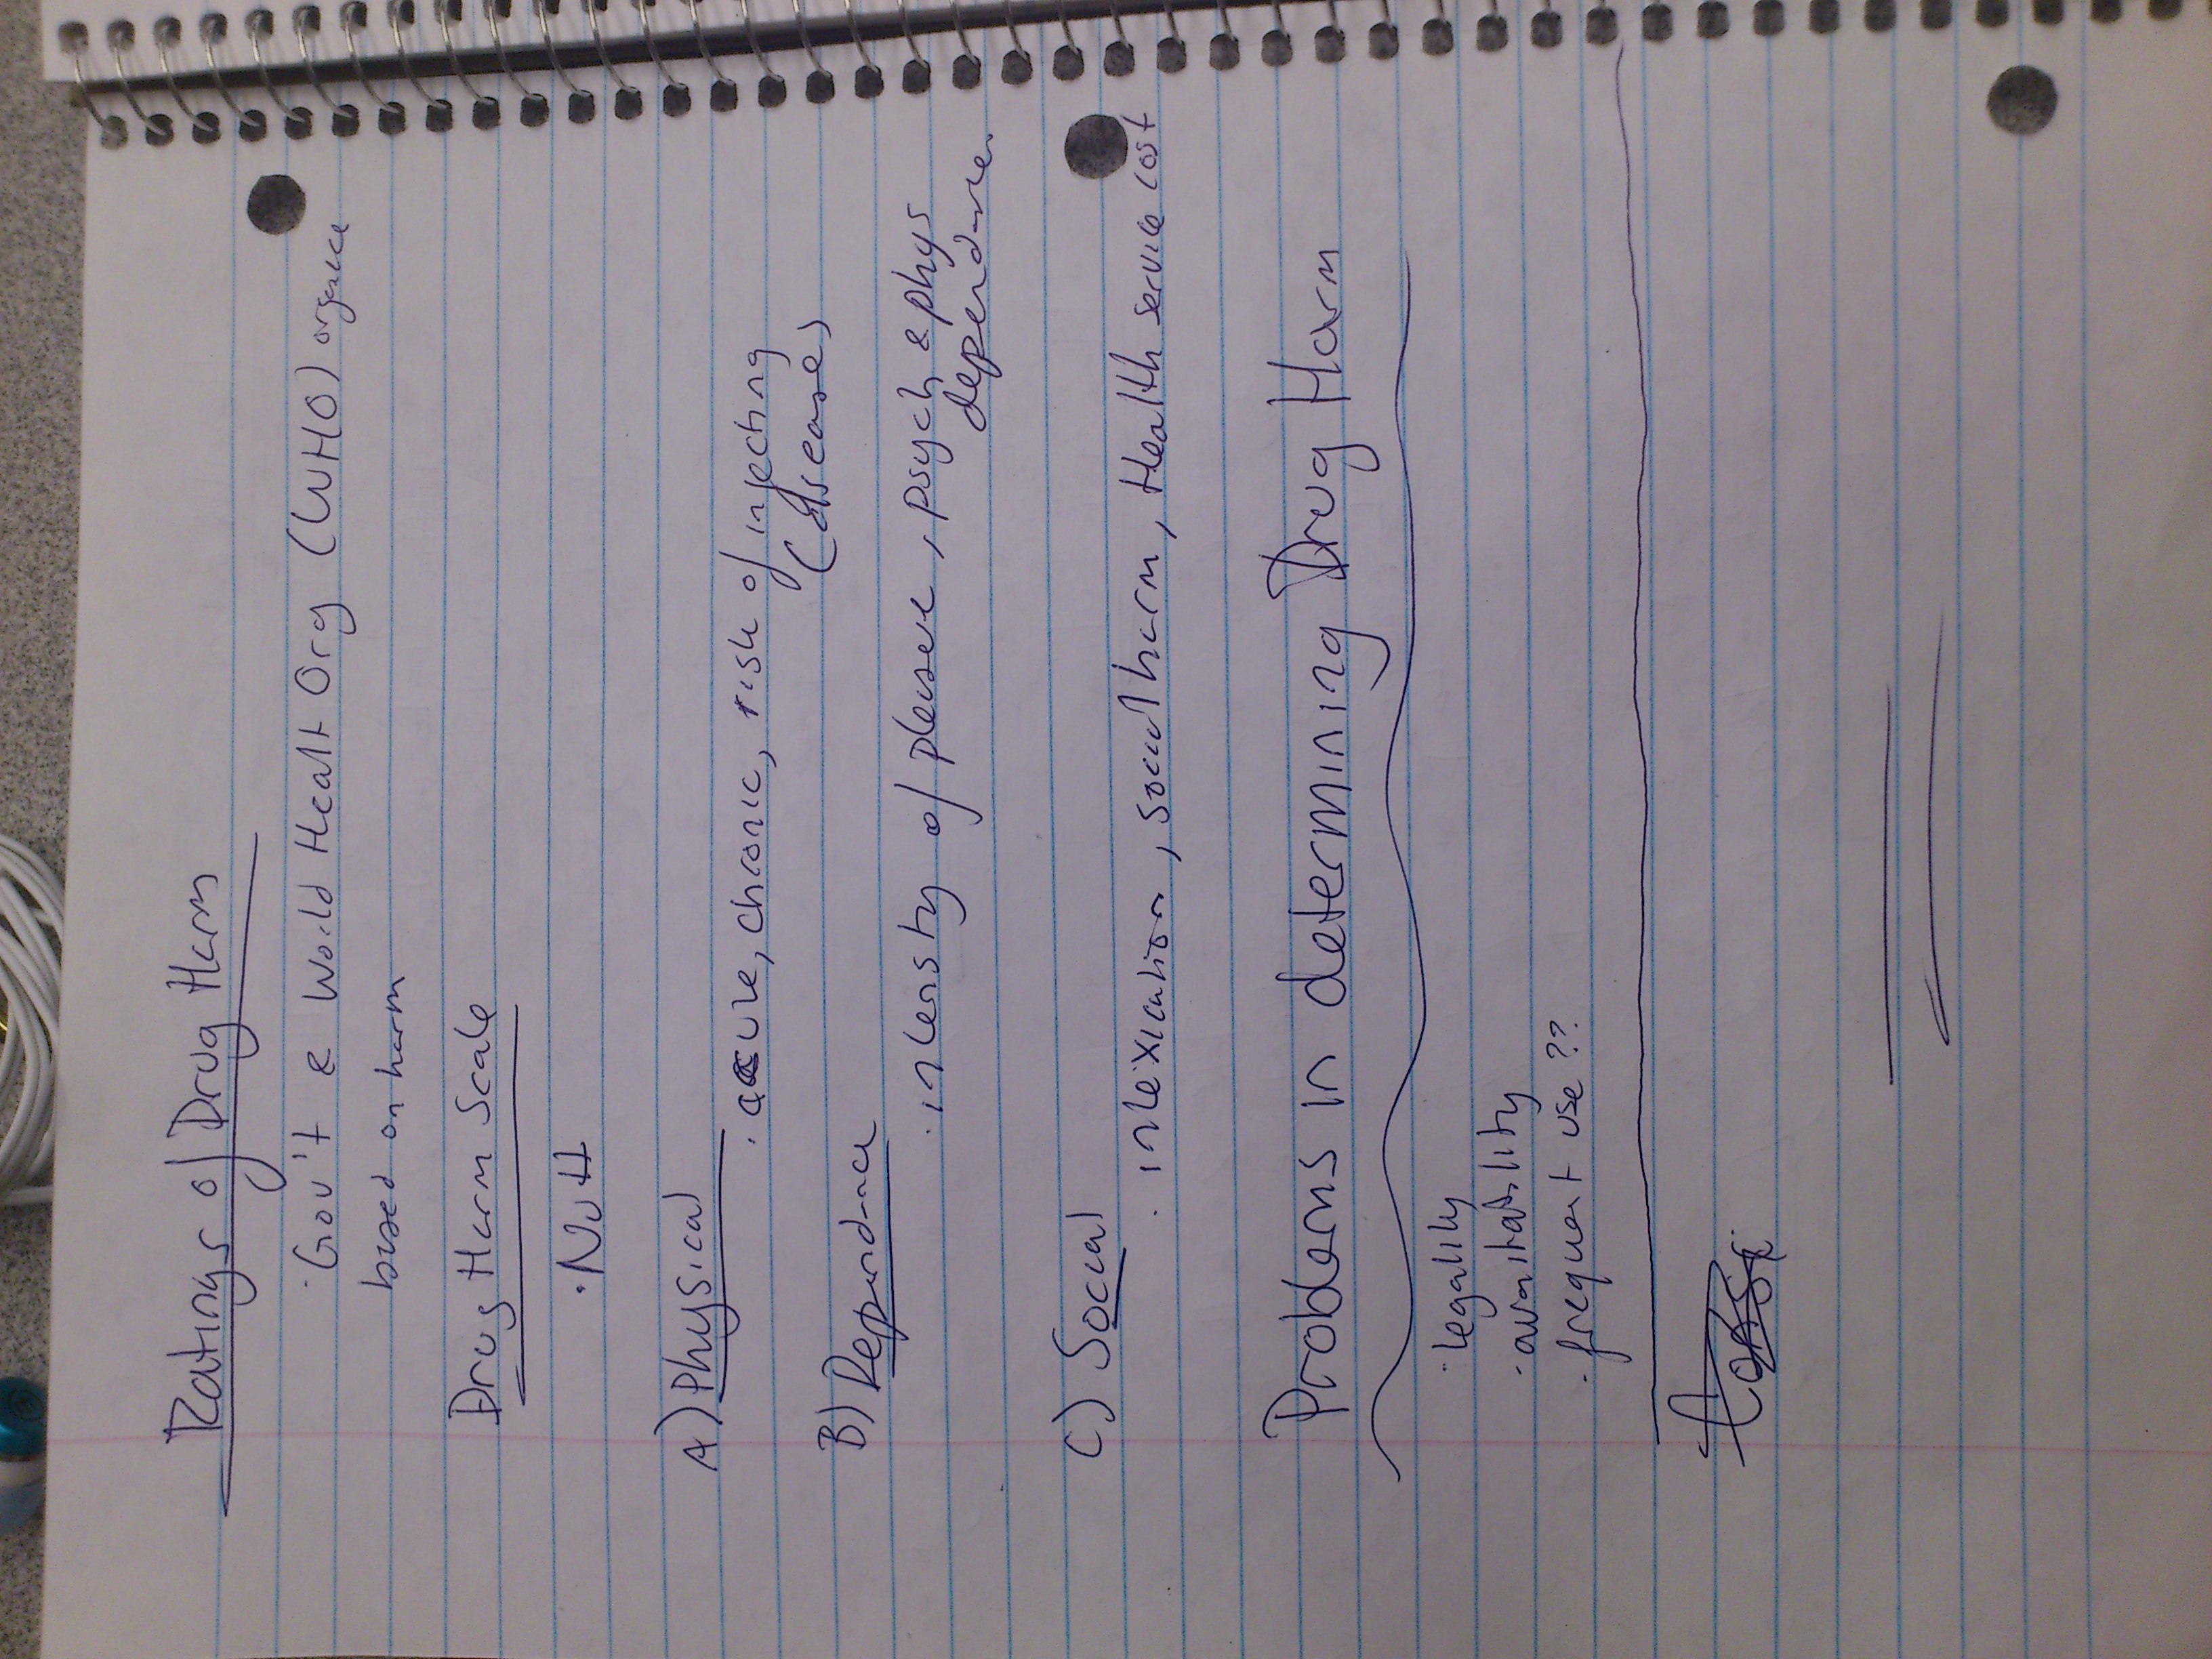 Ratings of Drug Harm
· Gov't & World Healt Org (WHO) organize
based on harm
Drug Harm Scale
· Nutt
A) Physical
· acute, chronic, risk of injecting
(diseases)
B) Dependence
· intensity of pleasure, psych & phys
dependence
C) Social
· intoxication, social harm, Health service cost
Problems in determining Drug Harm
· legality
· availability
· frequent use ??